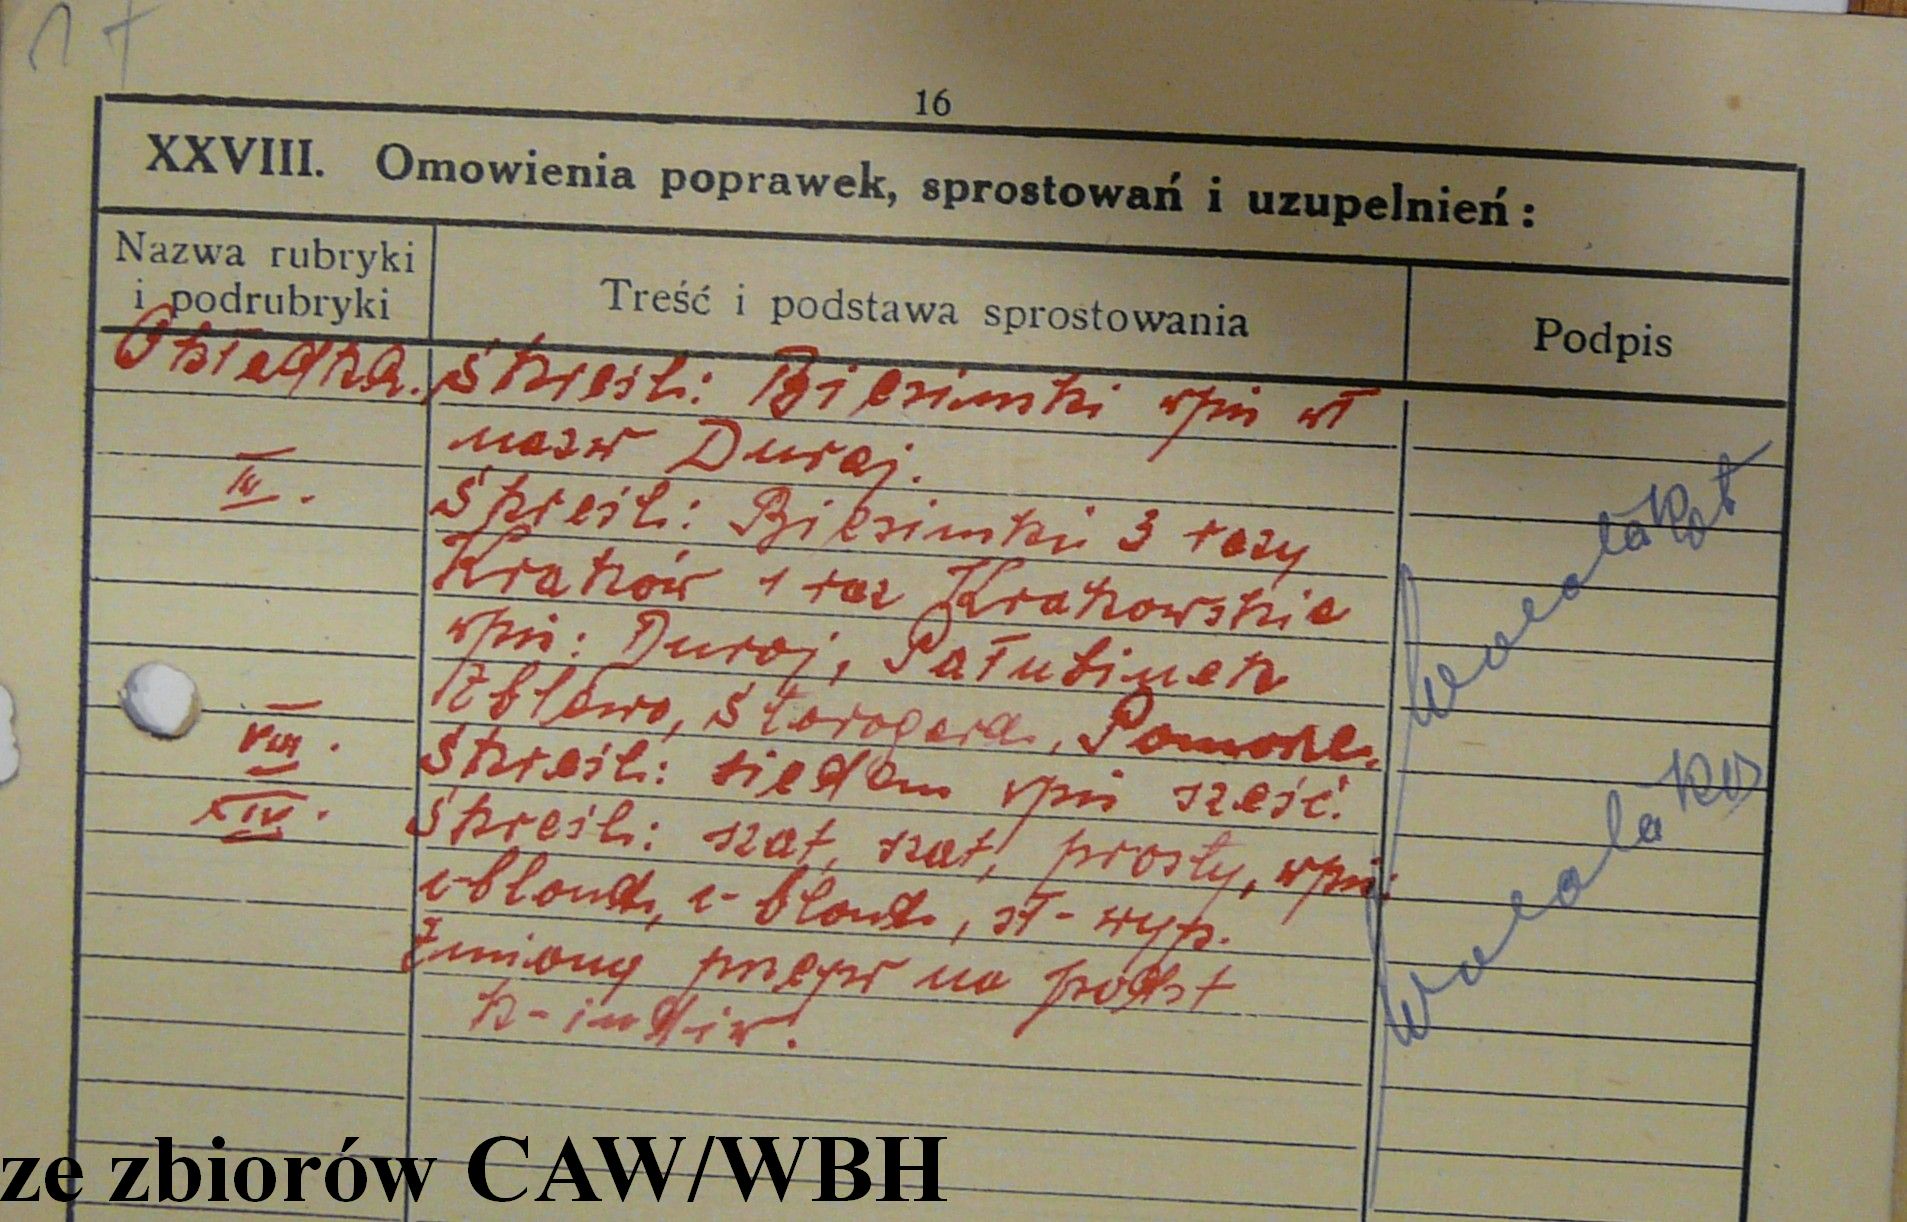 17
16
XXVIII. Omowienia poprawek, sprostowań i uzupelnień:
Nazwa rubryki
i podrubryki
Treść i podstawa sprostowania
Podpis
Okładka. Skreśl: Biesimski wpis wł
nazw Duraj.
IV. Skreśl: Biesimski 3 razy
Kraków 1 raz Krakowskie
wpis: Duraj, Pałubinek
Zblewo, Starogard, Pomorze.
VIII. Skreśl: siedem wpis sześć.
XIV. Skreśl: szat, szat, prosty, wpis:
c-blond, c-blond, sł-wyp.
Zmiany przepr na podst
k-indiw.
ze zbiorów CAW/WBH